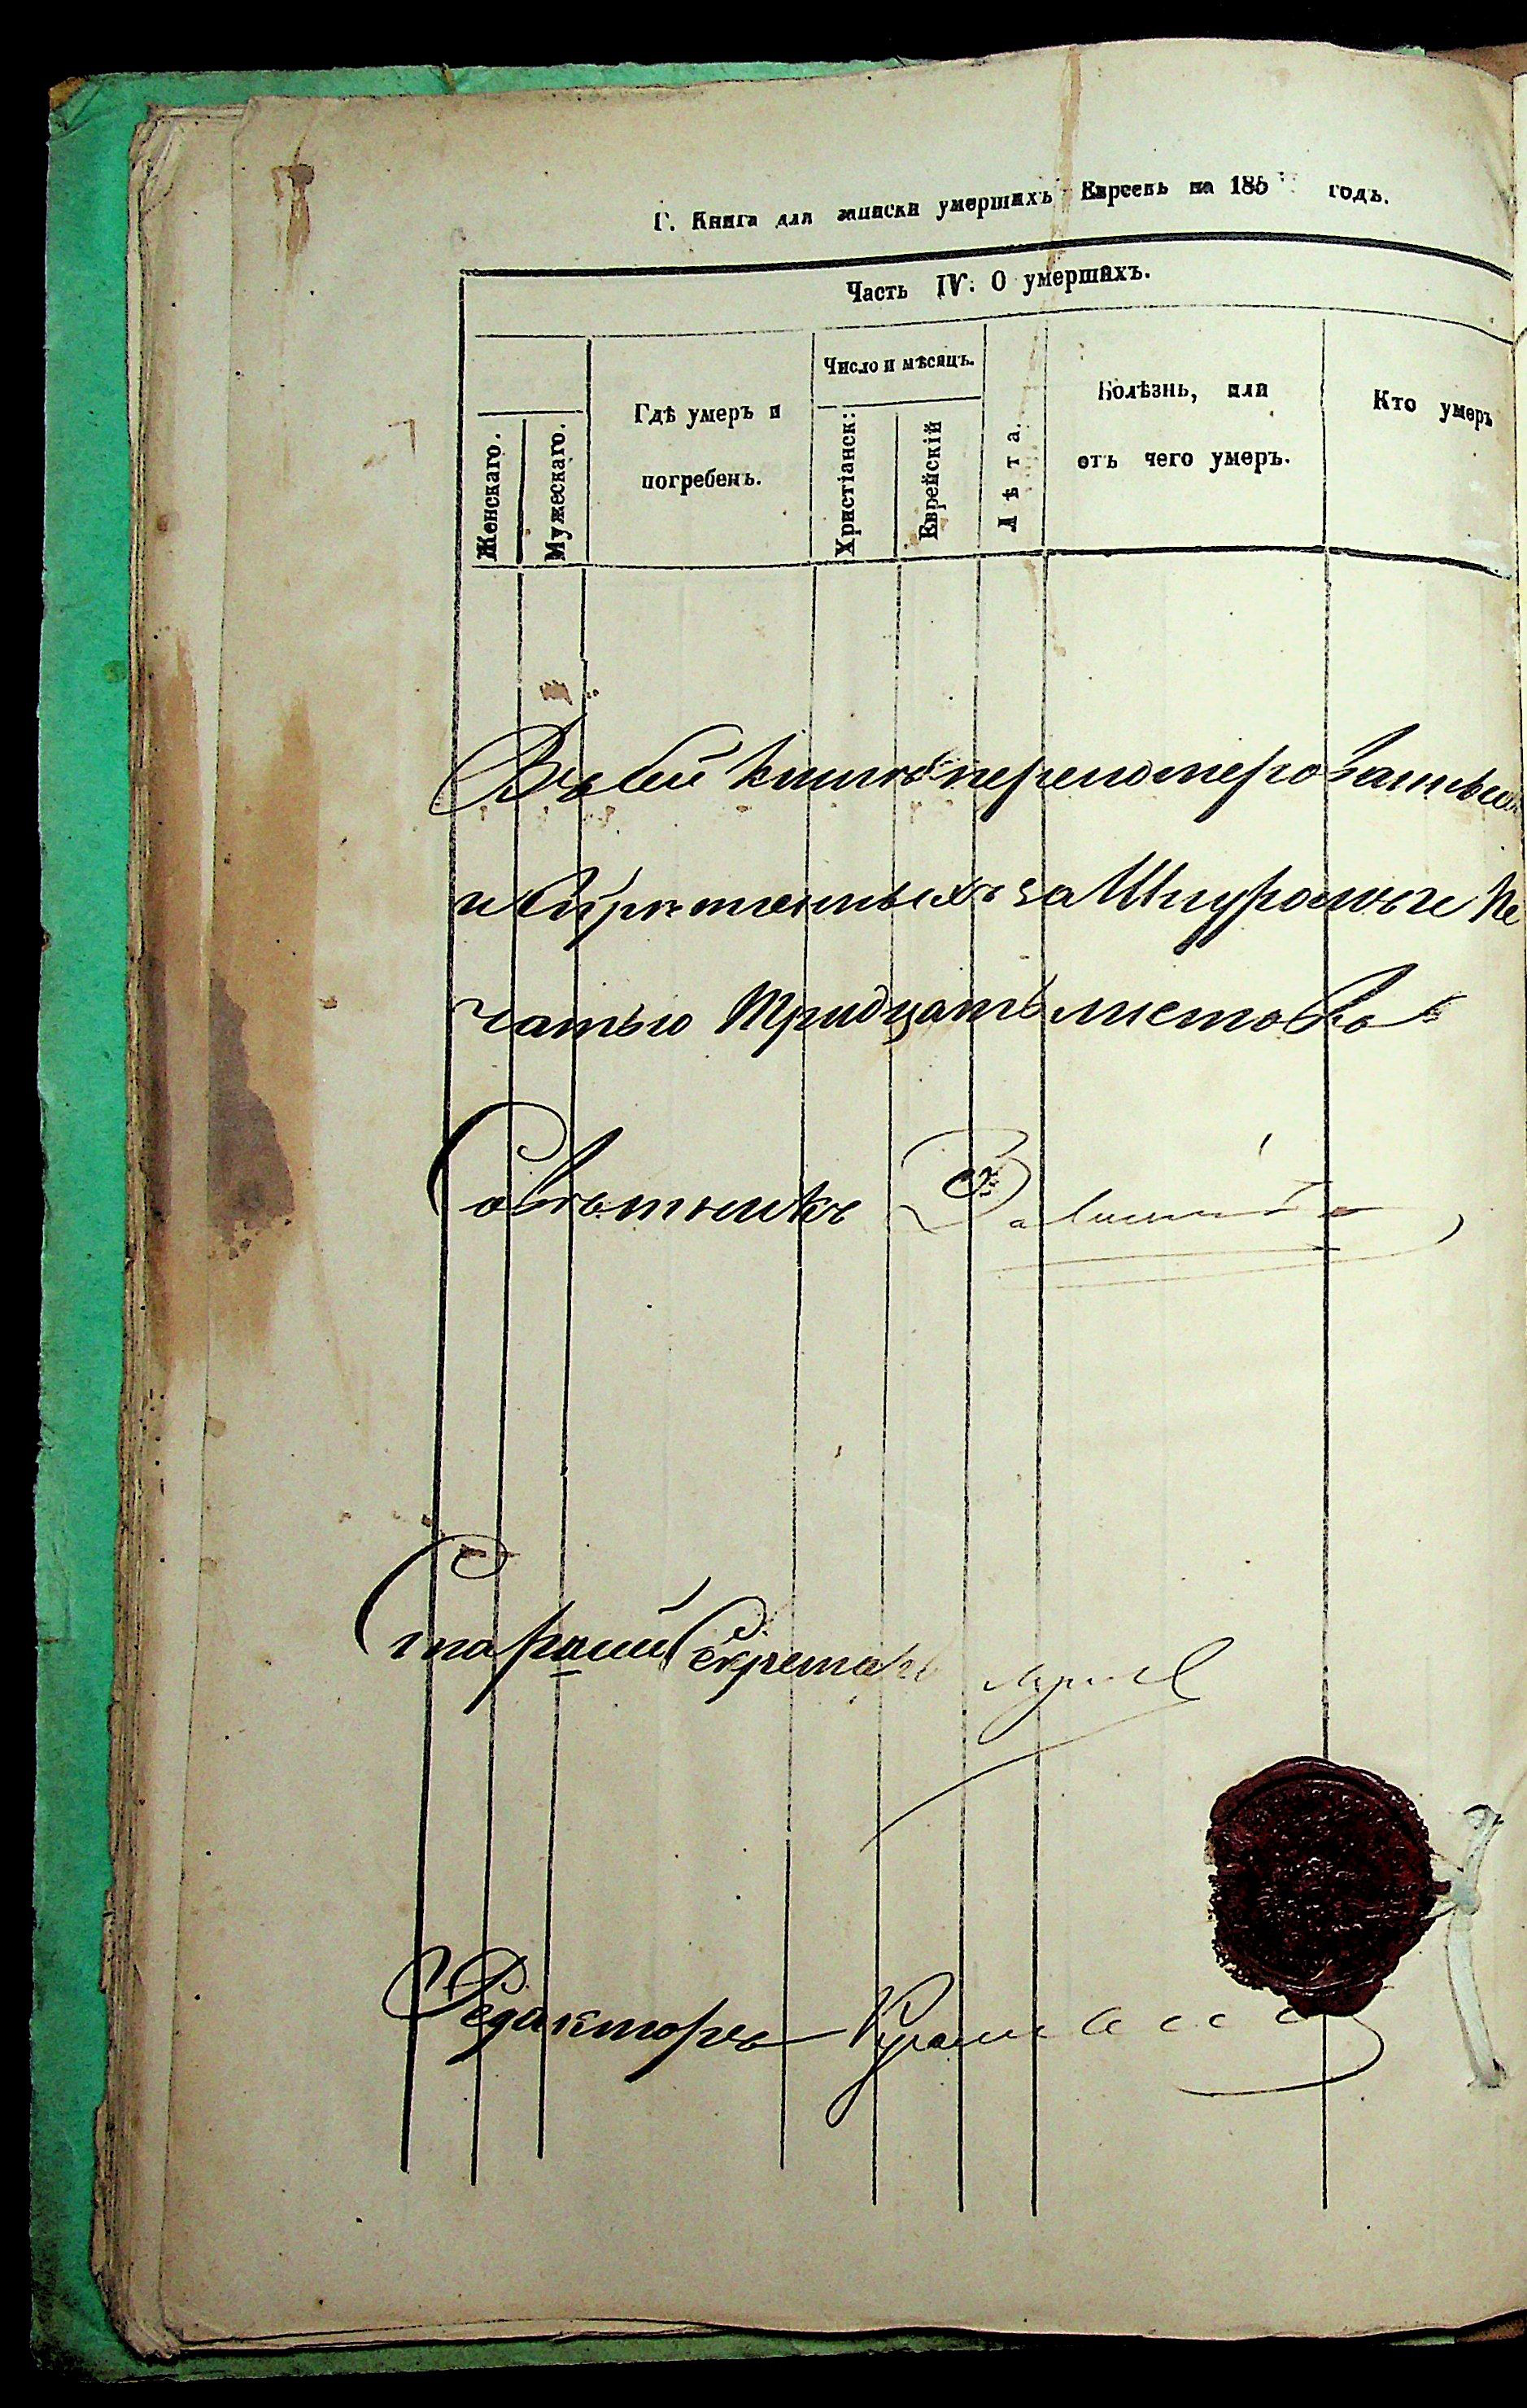 Г. Книга для записки умершихъ Евреевъ на 185 годъ.
Часть IV. О умершихъ.
Женскаго.
Мужескаго.
Гдѣ умеръ и
погребенъ.
Число и мѣсяцъ.
Христіанск:
Еврейскій
Лѣта.
Болѣзнь, или
отъ чего умеръ.
Кто умеръ
Въ сей книгѣ перенумерованныхъ
и скрѣпленныхъ за Шнуромъ и Пе
чатью Тридцать листовъ
Совѣтникъ
Старшій Секретарь
Редакторъ